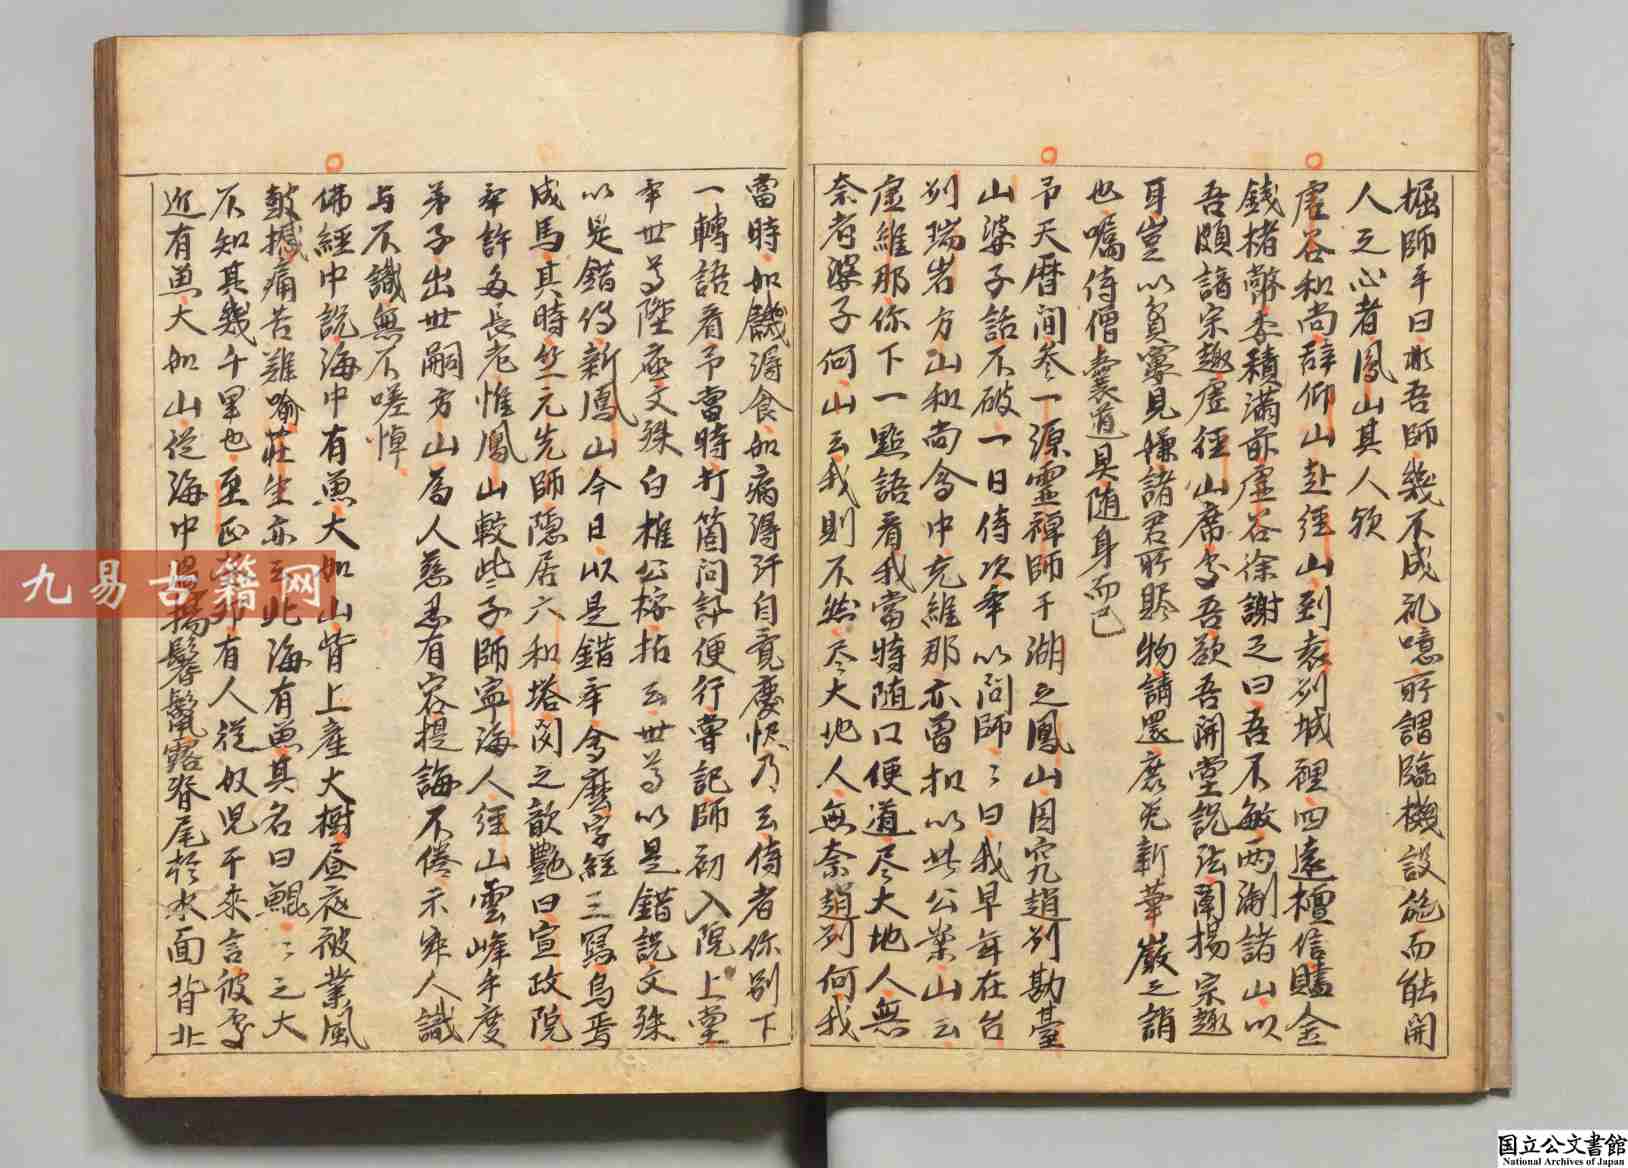 掘師平日 吾師幾不成礼噫所謂臨機設施而能開
人之心者鳳山其人欤
虚谷和尚辞仰山赴徑山到袁州城裡四遠檀信贐金
錢楮幣委積滿前虚谷徐謝之曰吾不敏両淛諸山以
吾頗諳宗趣虚徑山席 吾欲吾開堂説法闡揚宗趣
耳豈以貧窶見嫌諸君所賑物請還 免新華嚴之誚
也嘱侍僧囊道具随身而已
予天曆间参一源靈禅師于湖之鳳山因究趙州勘臺
山婆子話不破一日侍次举以问師〻曰我早年在台
州瑞岩方山和尚會中充維那亦曽扣以此公案山云
虚維那你下一點語看我當時随口便道尽大地人無
奈者婆子何山云我則不然尽大地人無奈趙州何我
當時如饑得食如病得汗自覔慶快乃云侍者你别下
一轉語看予當時打箇问訊便行曽記師初入院上堂
举世尊陞座文殊白椎公案拈云世尊以是錯説文殊
以是錯傳新鳳山今日以是錯举會麼字經三寫烏焉
成馬其時竺元先師隠居六和塔閱之歆艷曰宣政院
举許多長老惟鳳山較些子師寕海人徑山雲峰手度
弟子出世嗣方山為人慈忍有容提誨不倦示寂人識
与不識無不嗟悼
佛經中説海中有魚大如山背上產大樹昼夜被業風
皷撼痛苦難喻莊生亦云北海有魚其名曰鯤〻之大
不知其幾千里也至正 有人従奴児干来言彼處
近有魚大如山従海中 揚鬐鬣露脊尾於水面背北
九易古籍网
国立公文書館
National Archives of Japan